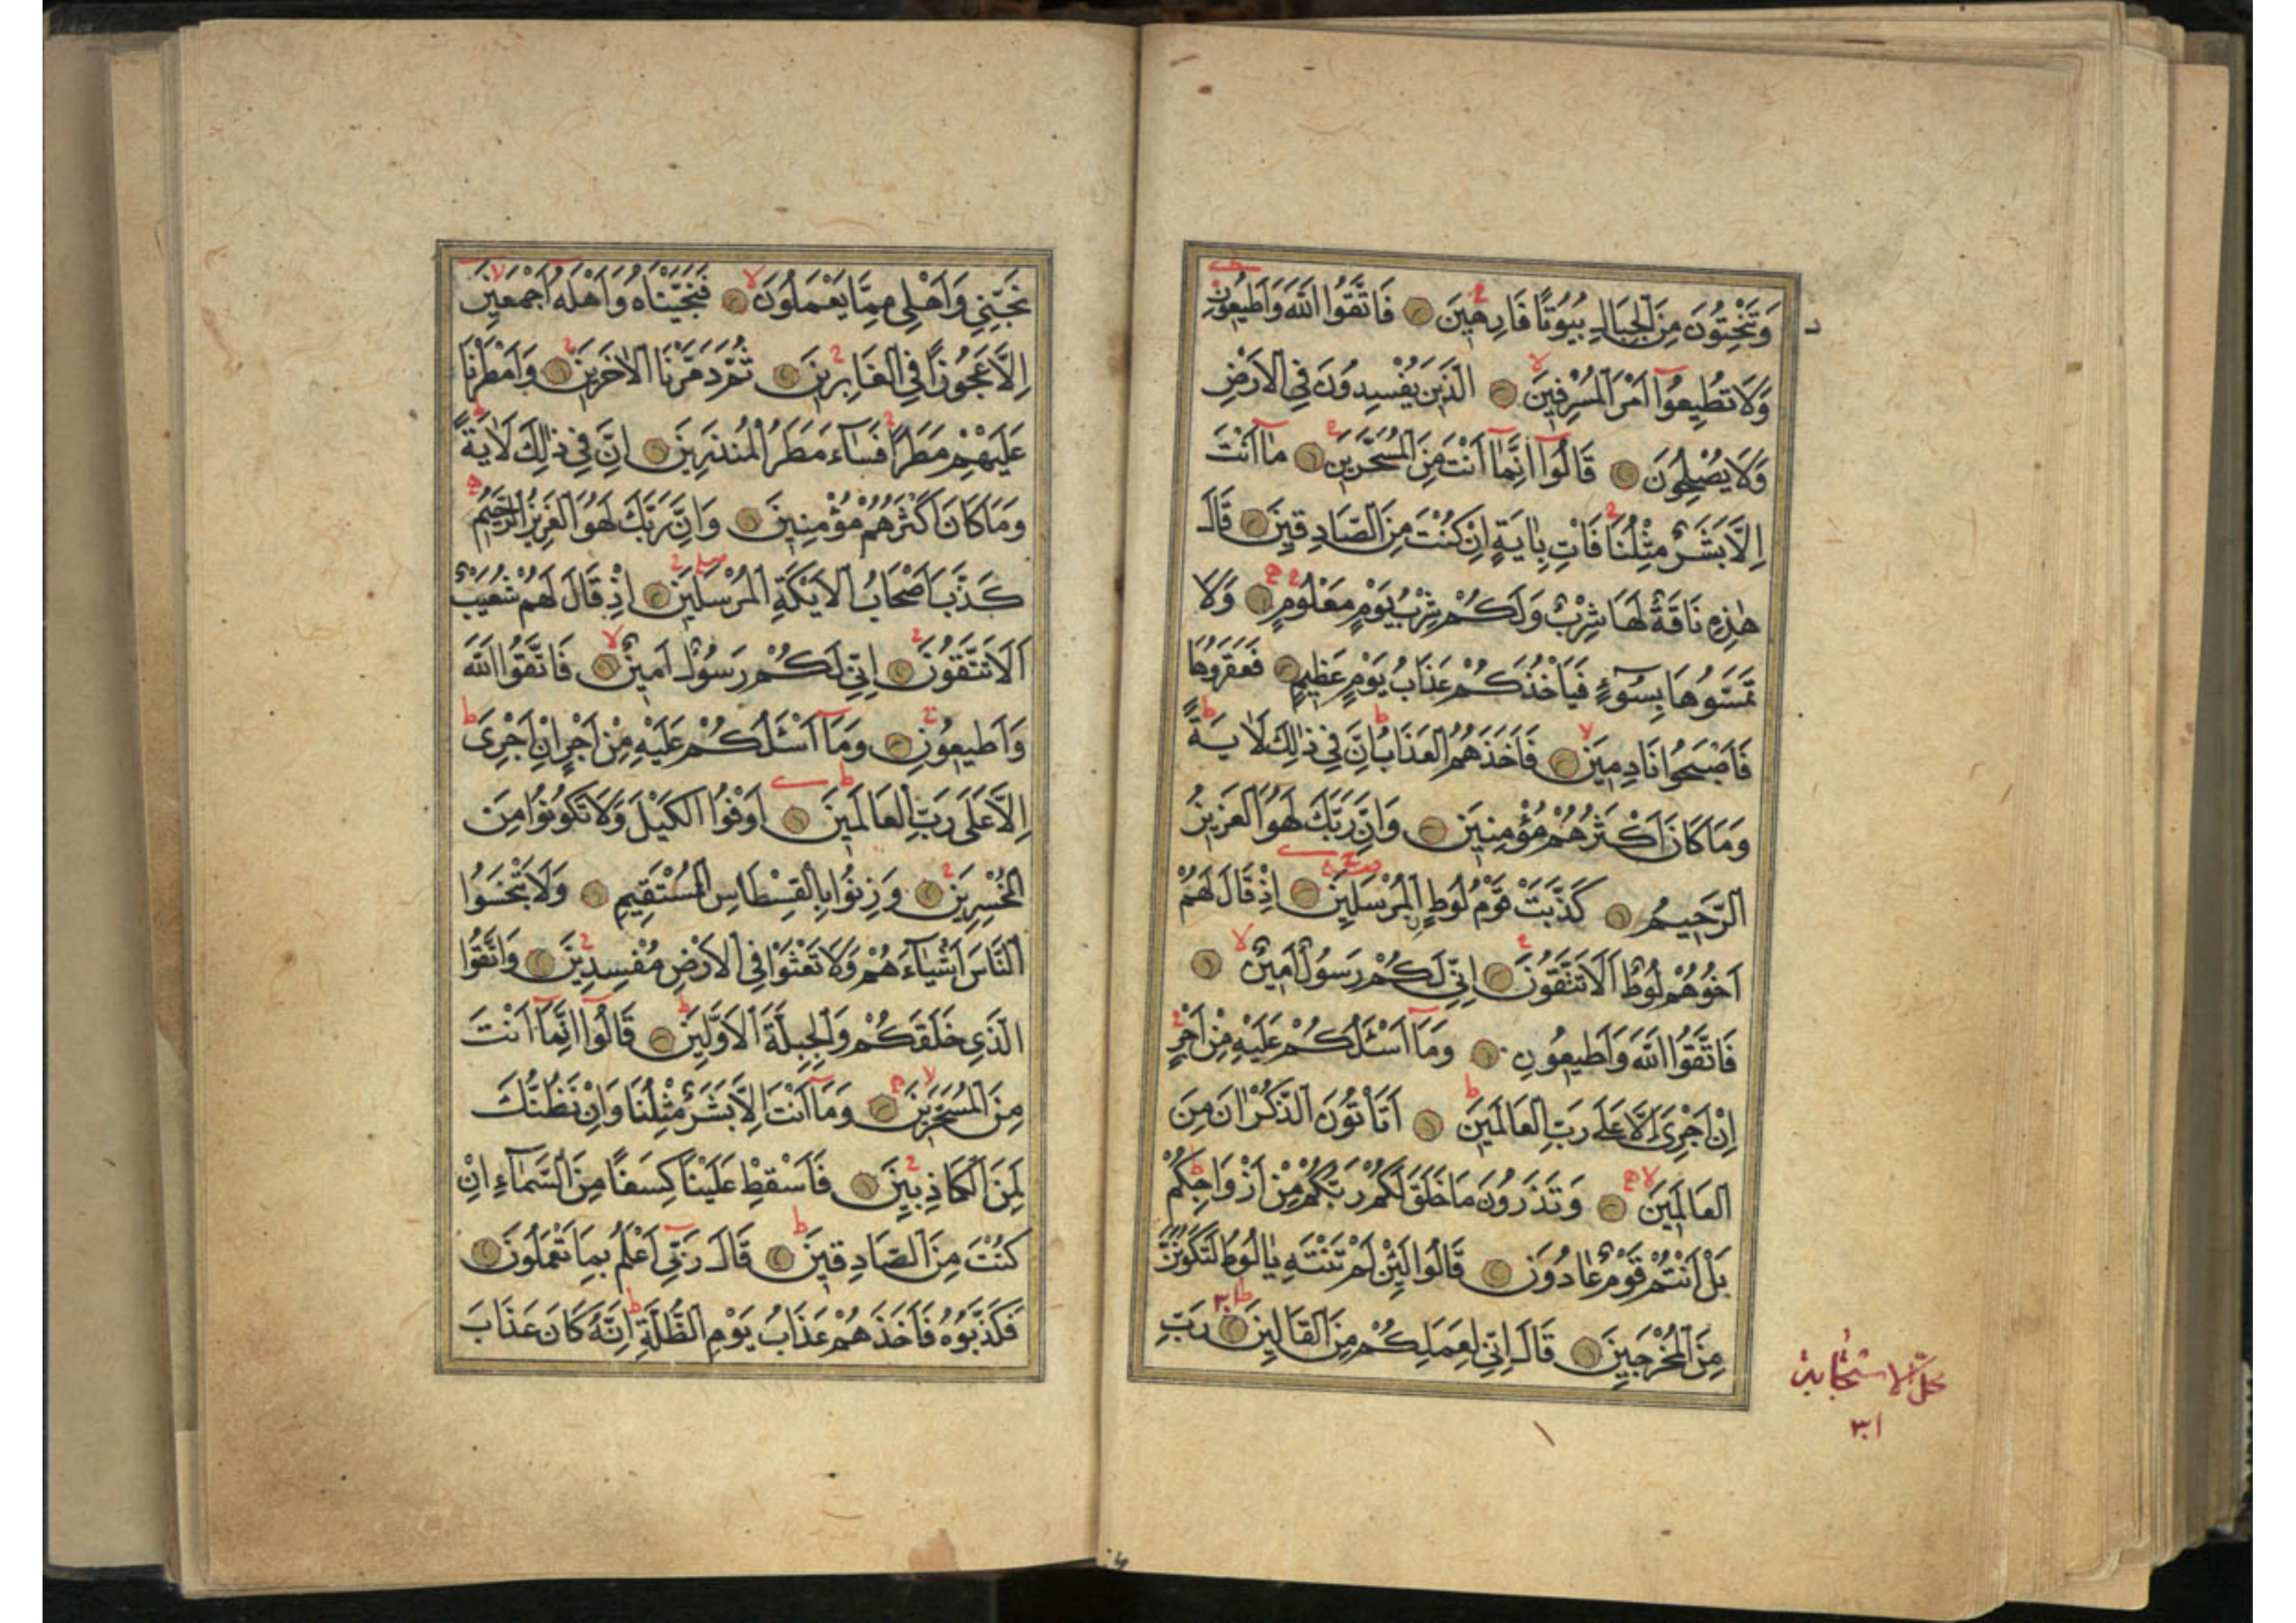 وَتَنْحِتُونَ مِنَ الْجِبَالِ بُيُوتًا فَارِهِينَ فَاتَّقُوا اللّٰهَ وَاَطِيعُونِ
وَلَا تُطِيعُوا اَمْرَ الْمُسْرِفِينَ الَّذِينَ يُفْسِدُونَ فِي الْاَرْضِ
وَلَا يُصْلِحُونَ قَالُوا اِنَّمَا اَنْتَ مِنَ الْمُسَحَّرِينَ مَا اَنْتَ
اِلَّا بَشَرٌ مِثْلُنَا فَاْتِ بِاٰيَةٍ اِنْ كُنْتَ مِنَ الصَّادِقِينَ قَالَ
هٰذِهِ نَاقَةٌ لَهَا شِرْبٌ وَلَكُمْ شِرْبُ يَوْمٍ مَعْلُومٍ وَلَا
تَمَسُّوهَا بِسُوٓءٍ فَيَاْخُذَكُمْ عَذَابُ يَوْمٍ عَظِيمٍ فَعَقَرُوهَا
فَاَصْبَحُوا نَادِمِينَ فَاَخَذَهُمُ الْعَذَابُ اِنَّ فِي ذٰلِكَ لَاٰيَةً
وَمَا كَانَ اَكْثَرُهُمْ مُؤْمِنِينَ وَاِنَّ رَبَّكَ لَهُوَ الْعَزِيزُ
الرَّحِيمُ كَذَّبَتْ قَوْمُ لُوطٍ الْمُرْسَلِينَ اِذْ قَالَ لَهُمْ
اَخُوهُمْ لُوطٌ اَلَا تَتَّقُونَ اِنِّي لَكُمْ رَسُولٌ اَمِينٌ
فَاتَّقُوا اللّٰهَ وَاَطِيعُونِ وَمَٓا اَسْـَٔلُكُمْ عَلَيْهِ مِنْ اَجْرٍ
اِنْ اَجْرِيَ اِلَّا عَلَى رَبِّ الْعَالَمِينَ اَتَاْتُونَ الذُّكْرَانَ مِنَ
الْعَالَمِينَ وَتَذَرُونَ مَا خَلَقَ لَكُمْ رَبُّكُمْ مِنْ اَزْوَاجِكُمْ
بَلْ اَنْتُمْ قَوْمٌ عَادُونَ قَالُوا لَئِنْ لَمْ تَنْتَهِ يَا لُوطُ لَتَكُونَنَّ
مِنَ الْمُخْرَجِينَ قَالَ اِنِّي لِعَمَلِكُمْ مِنَ الْقَالِينَ رَبِّ
نَجِّنِي وَاَهْلِي مِمَّا يَعْمَلُونَ فَنَجَّيْنَاهُ وَاَهْلَهُ اَجْمَعِينَ
اِلَّا عَجُوزًا فِي الْغَابِرِينَ ثُمَّ دَمَّرْنَا الْاٰخَرِينَ وَاَمْطَرْنَا
عَلَيْهِمْ مَطَرًا فَسَٓاءَ مَطَرُ الْمُنْذَرِينَ اِنَّ فِي ذٰلِكَ لَاٰيَةً
وَمَا كَانَ اَكْثَرُهُمْ مُؤْمِنِينَ وَاِنَّ رَبَّكَ لَهُوَ الْعَزِيزُ الرَّحِيمُ
كَذَّبَ اَصْحَابُ الْاَيْكَةِ الْمُرْسَلِينَ اِذْ قَالَ لَهُمْ شُعَيْبٌ
اَلَا تَتَّقُونَ اِنِّي لَكُمْ رَسُولٌ اَمِينٌ فَاتَّقُوا اللّٰهَ
وَاَطِيعُونِ وَمَٓا اَسْـَٔلُكُمْ عَلَيْهِ مِنْ اَجْرٍ اِنْ اَجْرِيَ
اِلَّا عَلَى رَبِّ الْعَالَمِينَ اَوْفُوا الْكَيْلَ وَلَا تَكُونُوا مِنَ
الْمُخْسِرِينَ وَزِنُوا بِالْقِسْطَاسِ الْمُسْتَقِيمِ وَلَا تَبْخَسُوا
النَّاسَ اَشْيَٓاءَهُمْ وَلَا تَعْثَوْا فِي الْاَرْضِ مُفْسِدِينَ وَاتَّقُوا
الَّذِي خَلَقَكُمْ وَالْجِبِلَّةَ الْاَوَّلِينَ قَالُوا اِنَّمَا اَنْتَ
مِنَ الْمُسَحَّرِينَ وَمَا اَنْتَ اِلَّا بَشَرٌ مِثْلُنَا وَاِنْ نَظُنُّكَ
لَمِنَ الْكَاذِبِينَ فَاَسْقِطْ عَلَيْنَا كِسَفًا مِنَ السَّمَٓاءِ اِنْ
كُنْتَ مِنَ الصَّادِقِينَ قَالَ رَبِّي اَعْلَمُ بِمَا تَعْمَلُونَ
فَكَذَّبُوهُ فَاَخَذَهُمْ عَذَابُ يَوْمِ الظُّلَّةِ اِنَّهُ كَانَ عَذَابَ